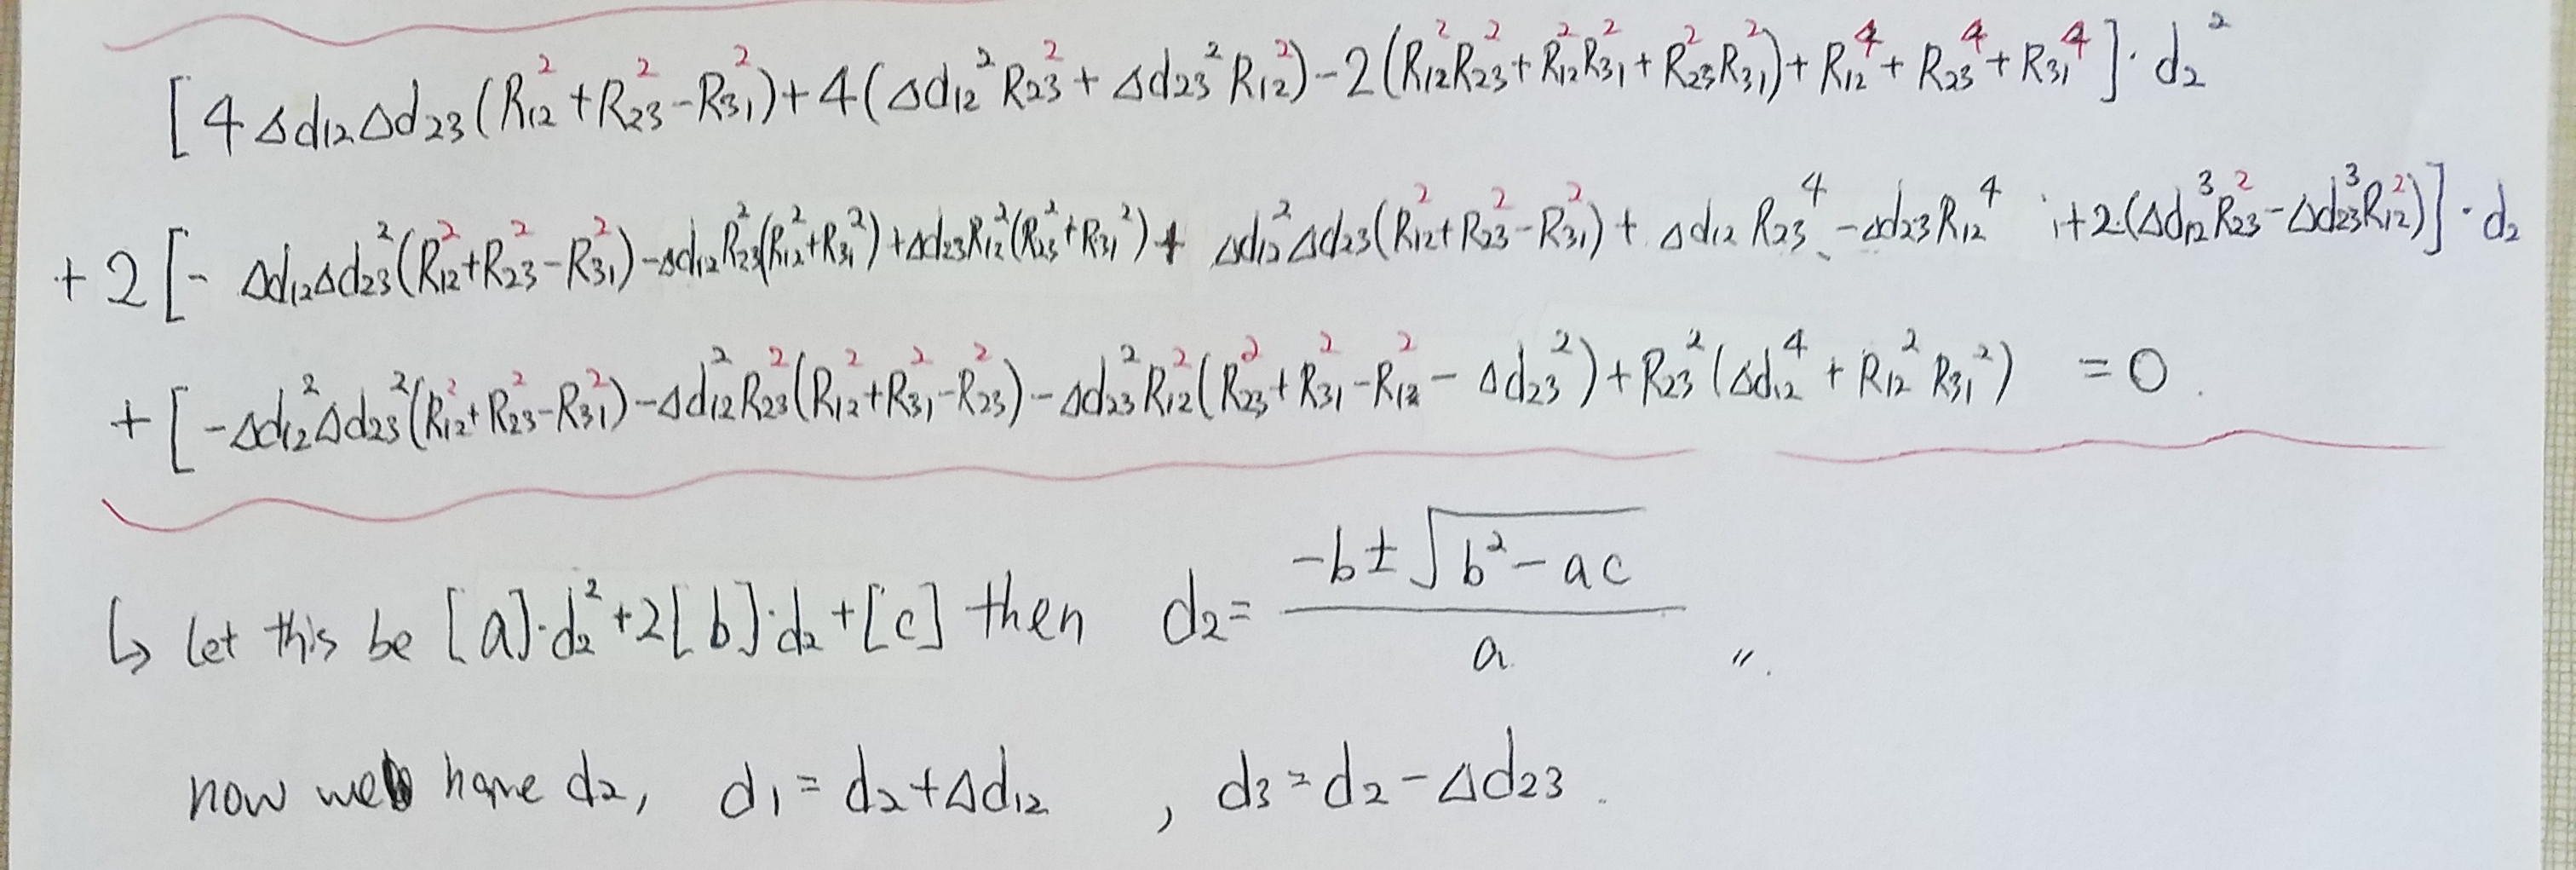 [4Δd₁₂Δd₂₃(R₁₂²+R₂₃²-R₃₁²)+4(Δd₁₂²R₂₃²+Δd₂₃²R₁₂²)-2(R₁₂²R₂₃²+R₁₂²R₃₁²+R₂₃²R₃₁²)+R₁₂⁴+R₂₃⁴+R₃₁⁴]·d₂²
+2[-Δd₁₂Δd₂₃²(R₁₂²+R₂₃²-R₃₁²)-Δd₁₂R₂₃²(R₁₂²+R₃₁²)+Δd₂₃R₁₂²(R₂₃²+R₃₁²)+Δd₁₂²Δd₂₃(R₁₂²+R₂₃²-R₃₁²)+Δd₁₂R₂₃⁴-Δd₂₃R₁₂⁴+2(Δd₁₂³R₂₃²-Δd₂₃³R₁₂²)]·d₂
+[-Δd₁₂²Δd₂₃²(R₁₂²+R₂₃²-R₃₁²)-Δd₁₂²R₂₃²(R₁₂²+R₃₁²-R₂₃²)-Δd₂₃²R₁₂²(R₂₃²+R₃₁²-R₁₂²-Δd₂₃²)+R₂₃²(Δd₁₂⁴+R₁₂²R₃₁²) =0.
↳ Let this be [a]·d₂²+2[b]·d₂+[c] then d₂= (-b±√(b²-ac))/a 〃.
now we have d₂, d₁=d₂+Δd₁₂ , d₃=d₂-Δd₂₃.